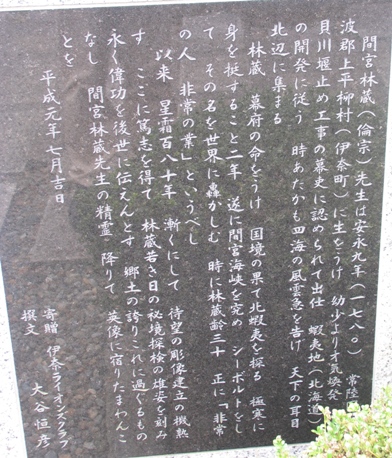 間宮林蔵(倫宗)先生は安永九年(一七八〇)常陸国筑
波郡上平柳村(伊奈町)に生をうけ 幼少より才気煥発
貝川堰止め工事の幕吏に認められて出仕 蝦夷地(北海道)
の開発に従う 時あたかも四海の風雲急を告げ 天下の耳目
北辺に集まる
林蔵 幕府の命をうけ 国境の果て北蝦夷を探る 極寒に
身を挺すること二年 遂に間宮海峡を究め シーボルトをし
て その名を世界に轟かしむ 時に林蔵齢三十 正に「非常
の人 非常の業」というべし
以来 星霜百八十年 漸くにして 待望の彫像建立の機熟
す ここに篤志を得て 林蔵若き日の秘境探検の雄姿を刻み
永く偉功を後世に伝えんとす 郷土の誇りこれに過ぐるもの
なし 間宮林蔵先生の精霊 降りて 英像に宿りたまわんこ
とを
平成元年七月吉日
寄贈 伊奈ライオンズクラブ
撰文 大谷恒彦